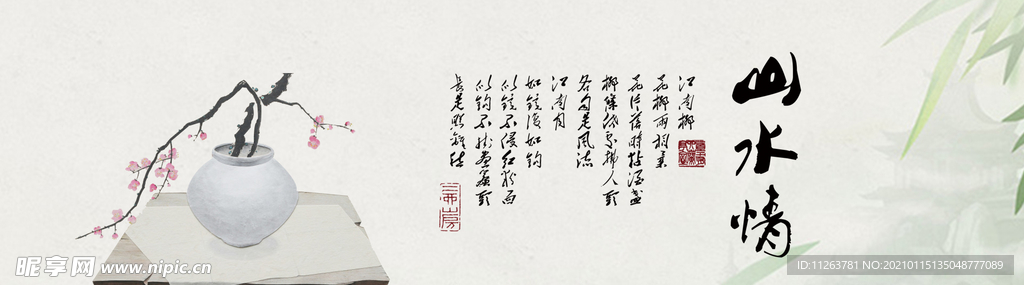 山水情
江南柳
花柳两相柔
花片落时黏酒盏
柳条低处拂人头
各自是风流
江南月
如镜复如钩
似镜不侵红粉面
似钩不挂画帘头
长是照离愁
昵享网 www.nipic.cn
ID:11263781 NO:20210115135048777089